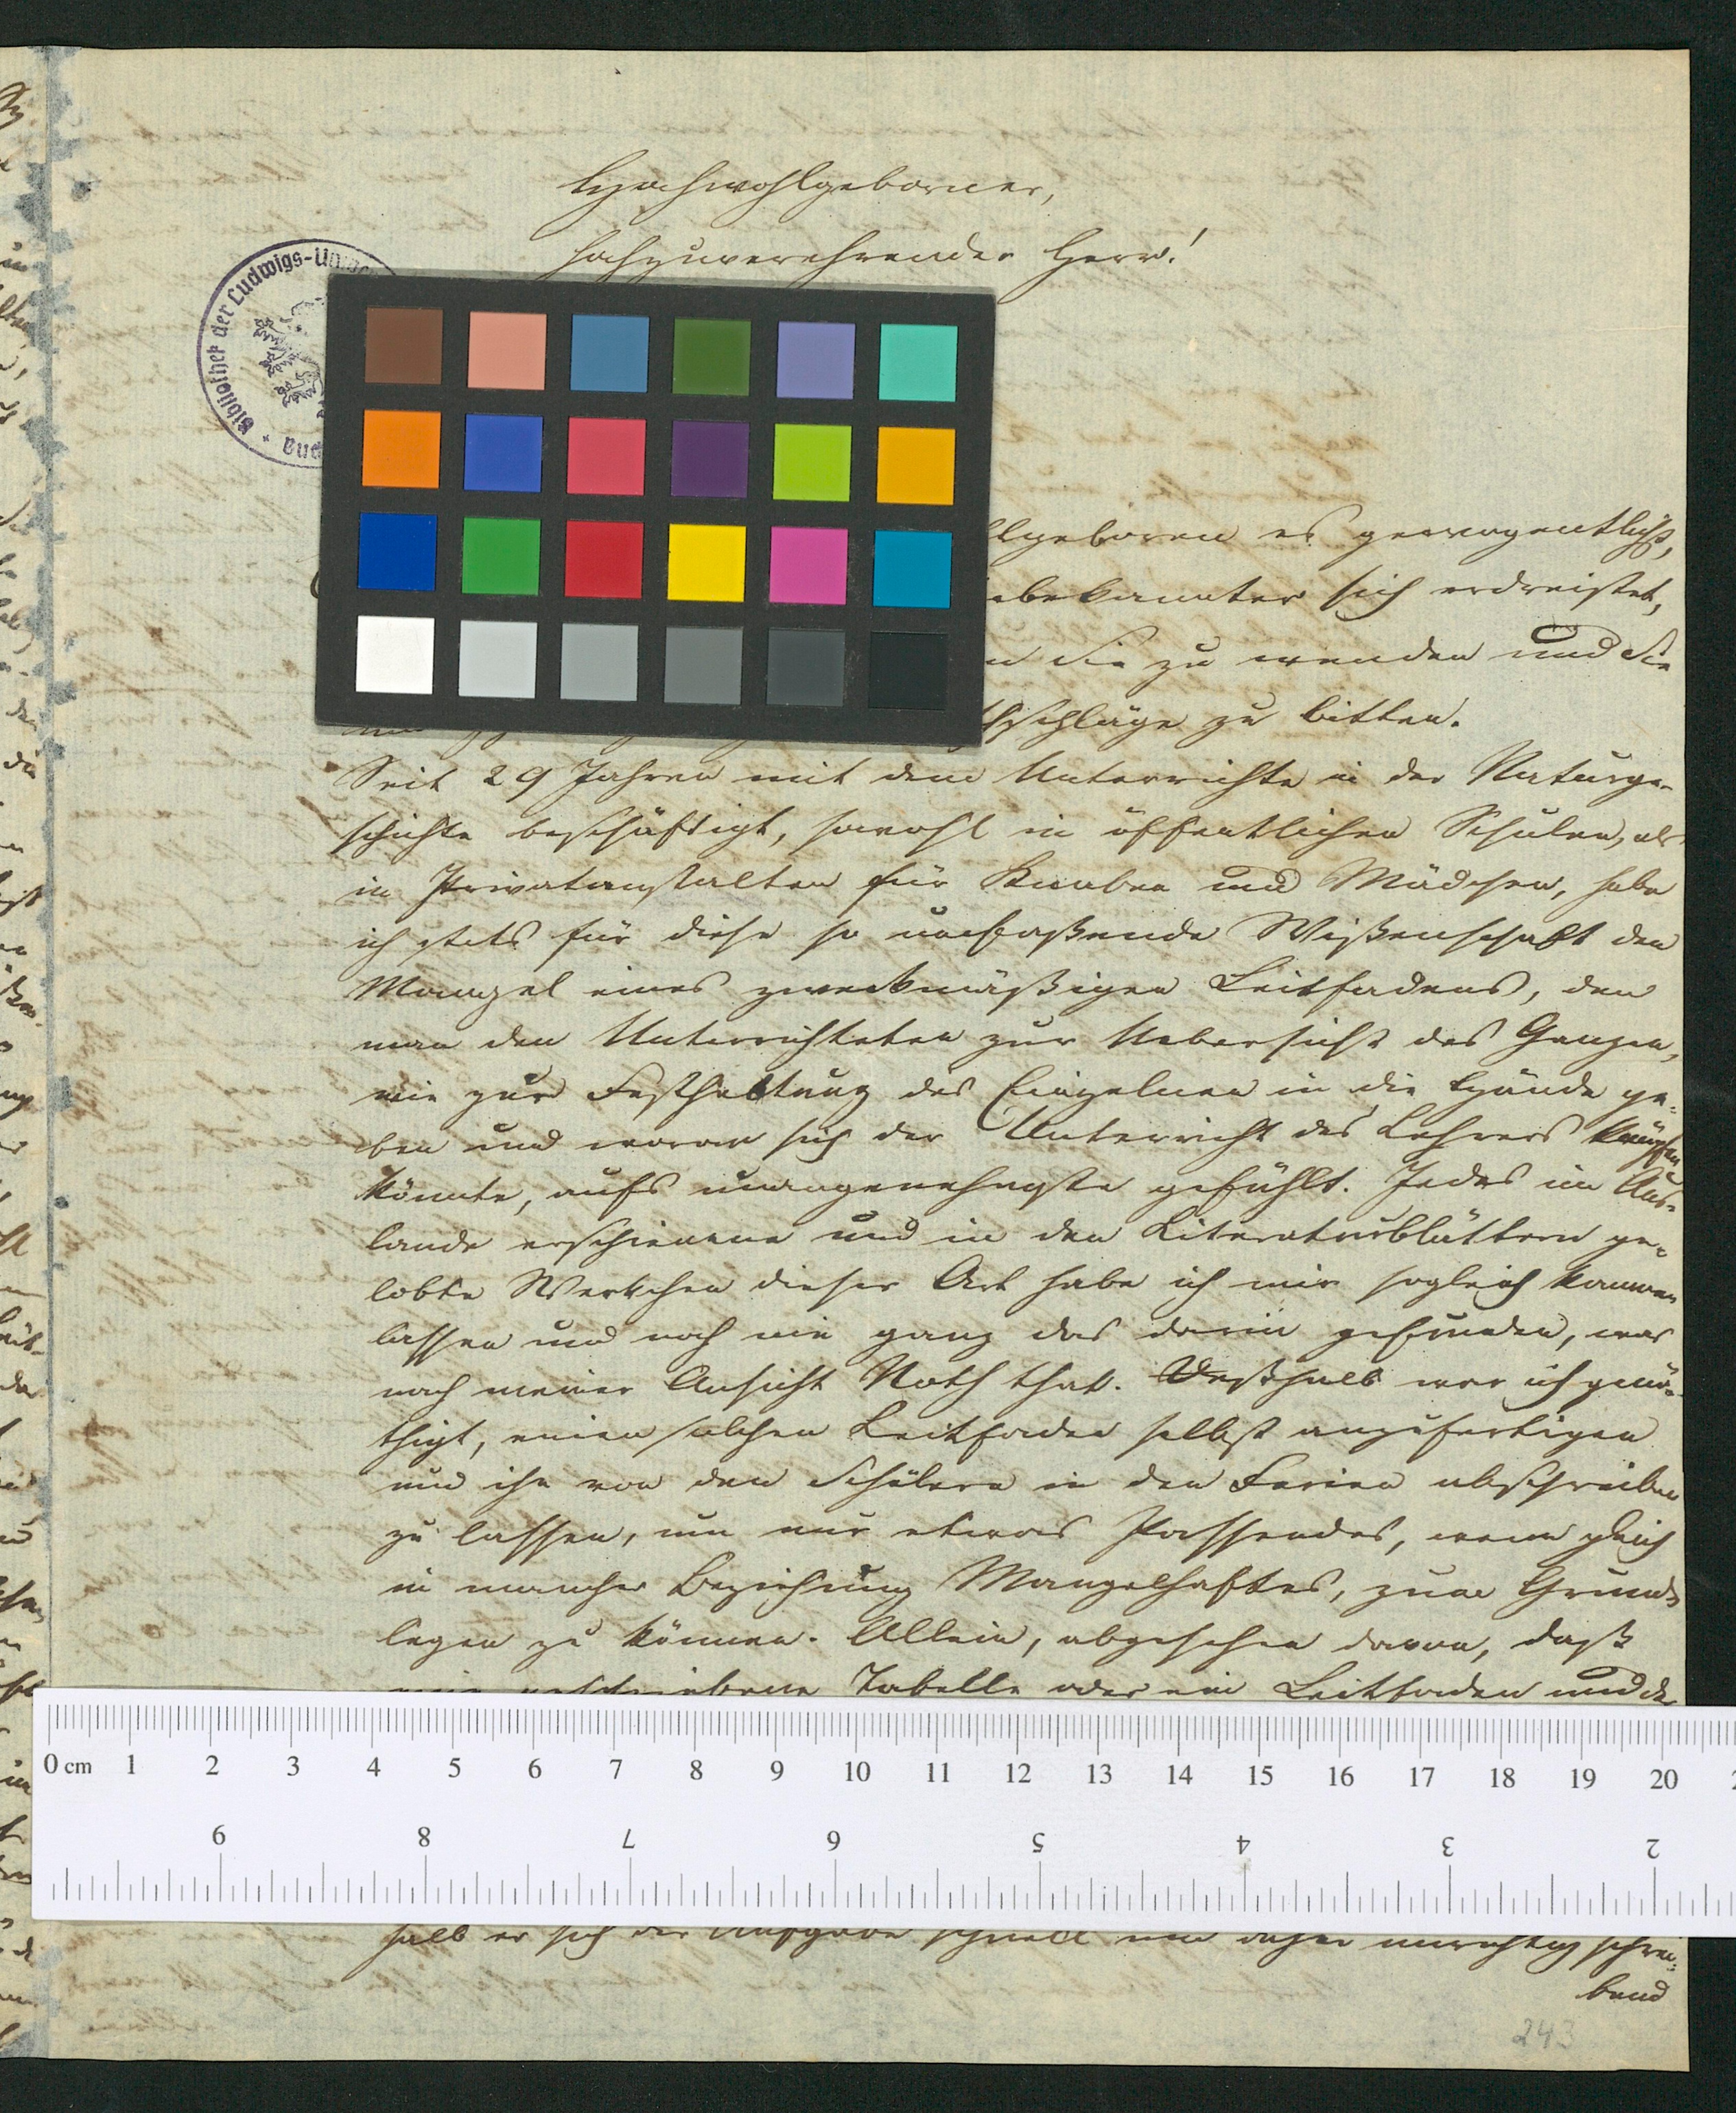 Hochwohlgeborner,
hochzuverehrender Herr!
Bibliothek der Ludwigs-Uni
lgeboren es gewogentlichst,
bekannter sich erdreistet,
Sie zu wenden und Sie
schläge zu bitten.
Seit 29 Jahren mit dem Unterrichte in der Naturge-
schichte beschäftigt, sowohl in öffentlichen Schulen, als
in Privatanstalten für Knaben und Mädchen, habe
ich stets für diese so umfaßende Wißenschaft den
Mangel eines zweckmäßigen Leitfadens, den
man den Unterrichteten zur Uebersicht des Ganzen,
wie zur Festhaltung des Einzelnen in die Hände ge-
ben und woran sich der Unterricht des Lehrers knüpfen
könnte, aufs unangenehmste gefühlt. Jedes im Aus-
lande erschienene und in den Literaturblättern ge-
lobte Werkchen dieser Art habe ich mir sogleich kommen
lassen und noch nie ganz das darin gefunden, was
nach meiner Ansicht Noth that. Deßhalb war ich genö-
thigt, einen solchen Leitfaden selbst anzufertigen
und ihn von den Schülern in den Ferien abschreiben
zu lassen, um nur etwas Passendes, wenn gleich
in mancher Beziehung Mangelhaftes, zum Grunde
legen zu können. Allein, abgesehen davon, daß
eine geschriebene Tabelle oder ein Leitfaden und der
0 cm 1 2 3 4 5 6 7 8 9 10 11 12 13 14 15 16 17 18 19 20
9 8 7 6 5 4 3 2
halb er sich der Aufgabe schnell und daher unrichtig schrei-
bend
243